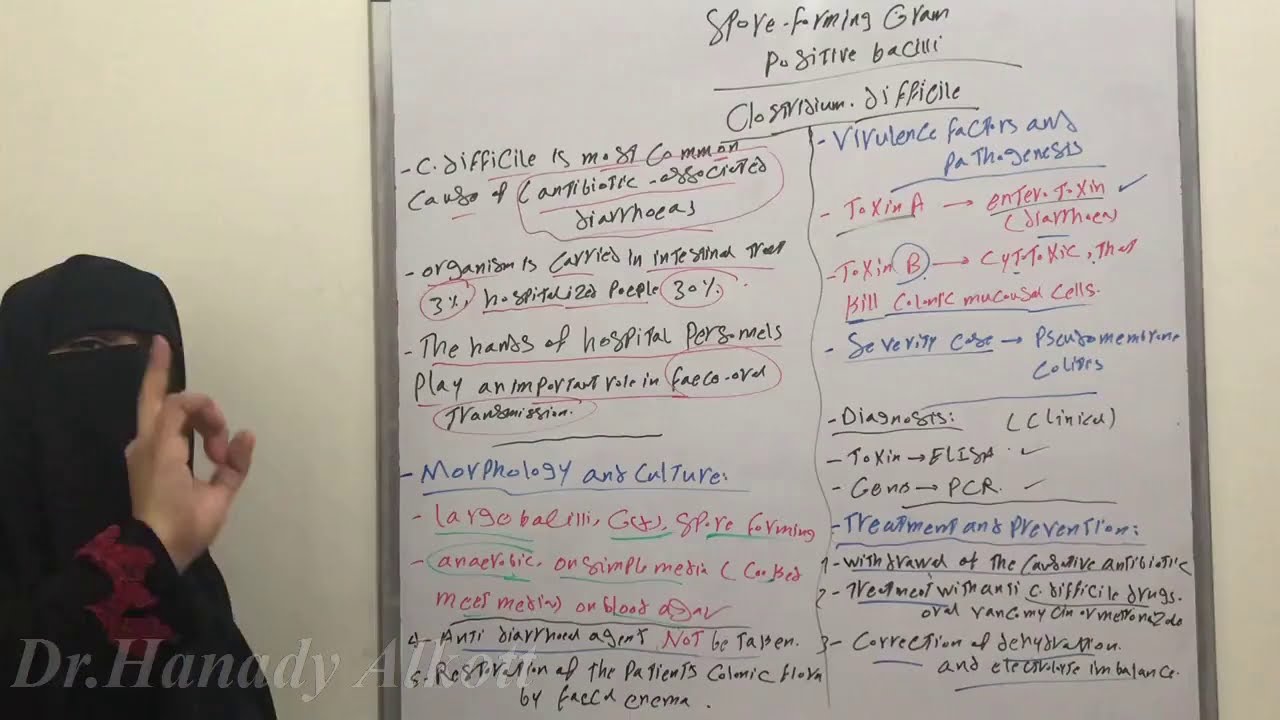 Spore-forming Gram
Positive bacilli
Clostridium. difficile
- C. difficile is most common
cause of (antibiotic-associated
diarrhoeas
- organism is carried in intestinal tract
3%, hospitalized people 30%.
- The hands of hospital Personnels
Play an important role in faeco-oral
Transmission.
- Morphology and culture:
- large bacilli, G(+), spore forming
- anaerobic. on simple media (Cooked
meet media) on blood agar
4- Anti diarrhoeal agent NOT be taken.
5- Restoration of the Patients Colonic flora
by faecal enema.
- Virulence factors and
pathogenesis
- Toxin A → enterotoxin ✓
(diarrhoea)
- Toxin B → cytotoxic, that
kill colonic mucousal cells.
- Severity case → Pseudomembrane
colites
- Diagnosis: (Clinical)
- Toxin → ELISA ✓
- Gens → PCR ✓
- Treatment and prevention:
1- withdrawal of the causative antibiotic
2- Treatment with anti C. difficile drugs.
oral vancomycin or metronazole
3- Correction of dehydration.
and electrolyte imbalance.
Dr.Hanady Alkott